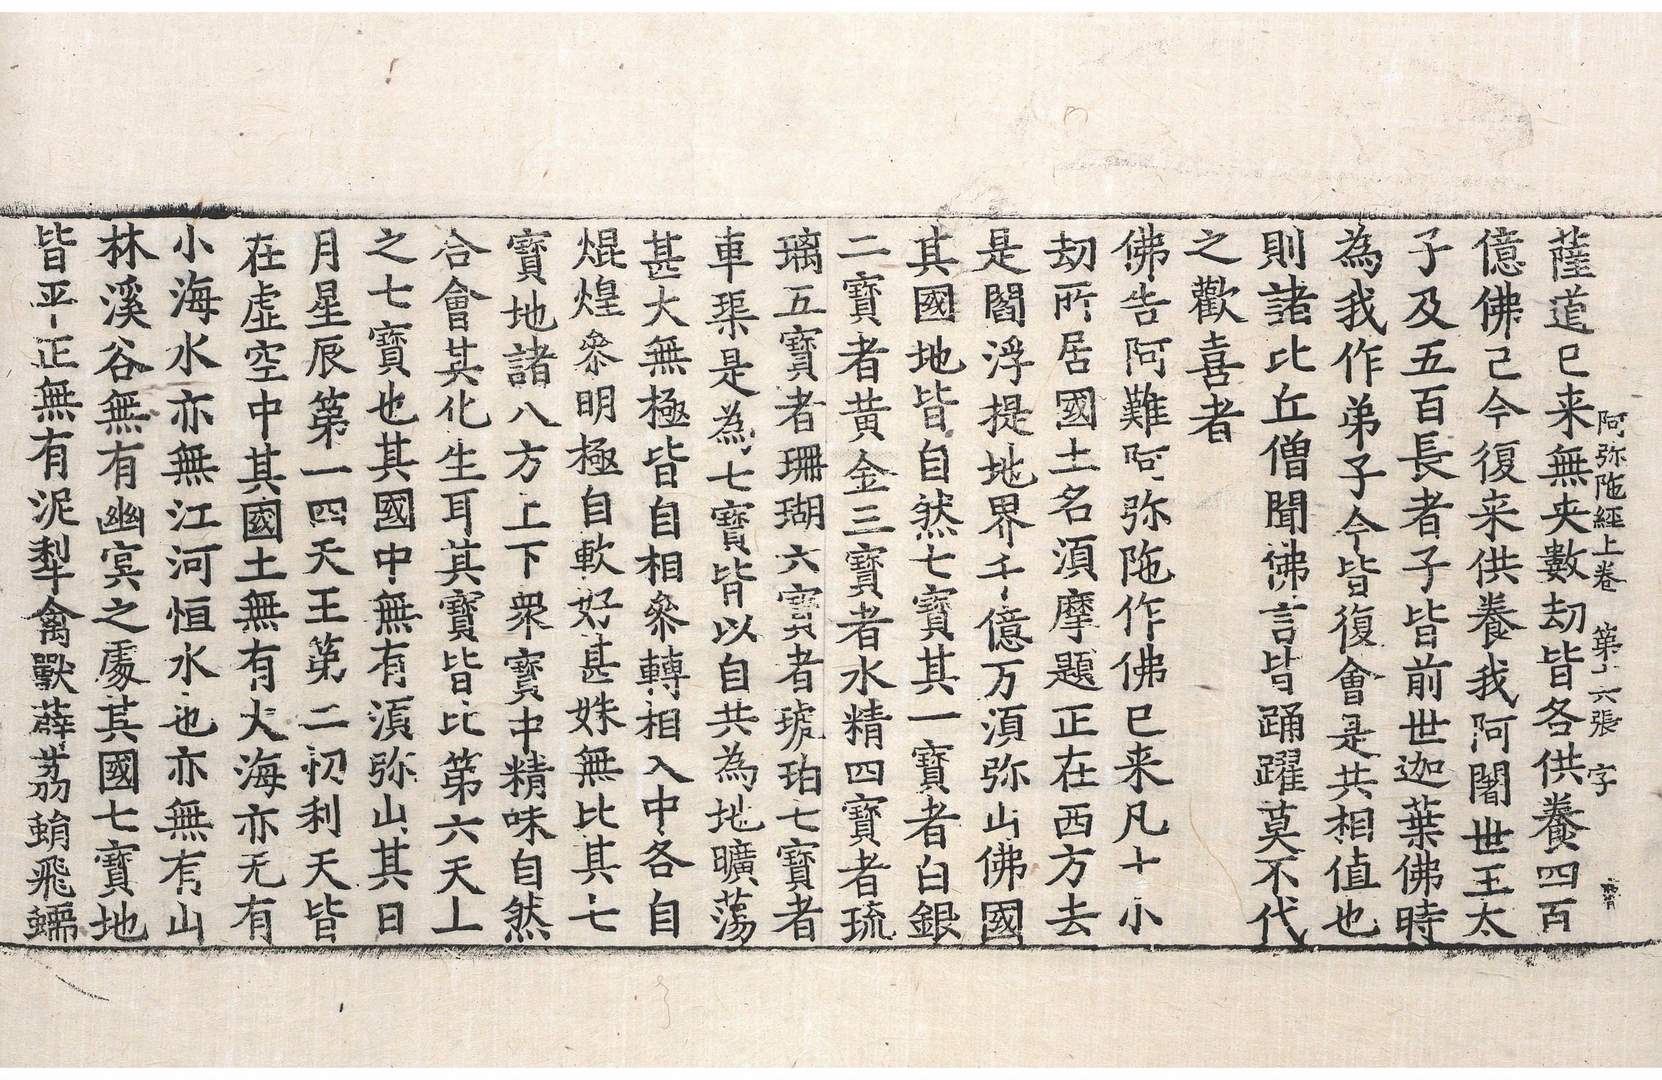 阿弥陁經上卷 第十六張 字
薩道已来無央數劫皆各供養四百
億佛已今復来供養我阿闍世王太
子及五百長者子皆前世迦葉佛時
為我作弟子今皆復會是共相值也
則諸比丘僧聞佛言皆踊躍莫不代
之歡喜者
佛告阿難阿弥陁作佛已来凡十小
劫所居國土名須摩題正在西方去
是閻浮提地界千億万須弥山佛國
其國地皆自然七寶其一寶者白銀
二寶者黄金三寶者水精四寶者琉
璃五寶者珊瑚六寶者琥珀七寶者
車𤦲是為七寶皆以自共為地曠蕩
甚大無極皆自相叅轉相入中各自
焜煌叅明極自軟好甚姝無比其七
寶地諸八方上下衆寶中精味自然
合會其化生耳其寶皆比第六天上
之七寶也其國中無有湏弥山其日
月星辰第一四天王第二忉利天皆
在虛空中其國土無有大海亦无有
小海水亦無江河恒水也亦無有山
林溪谷無有幽冥之處其國七寶地
皆平正無有泥犁禽獸薜荔蜎飛蠕